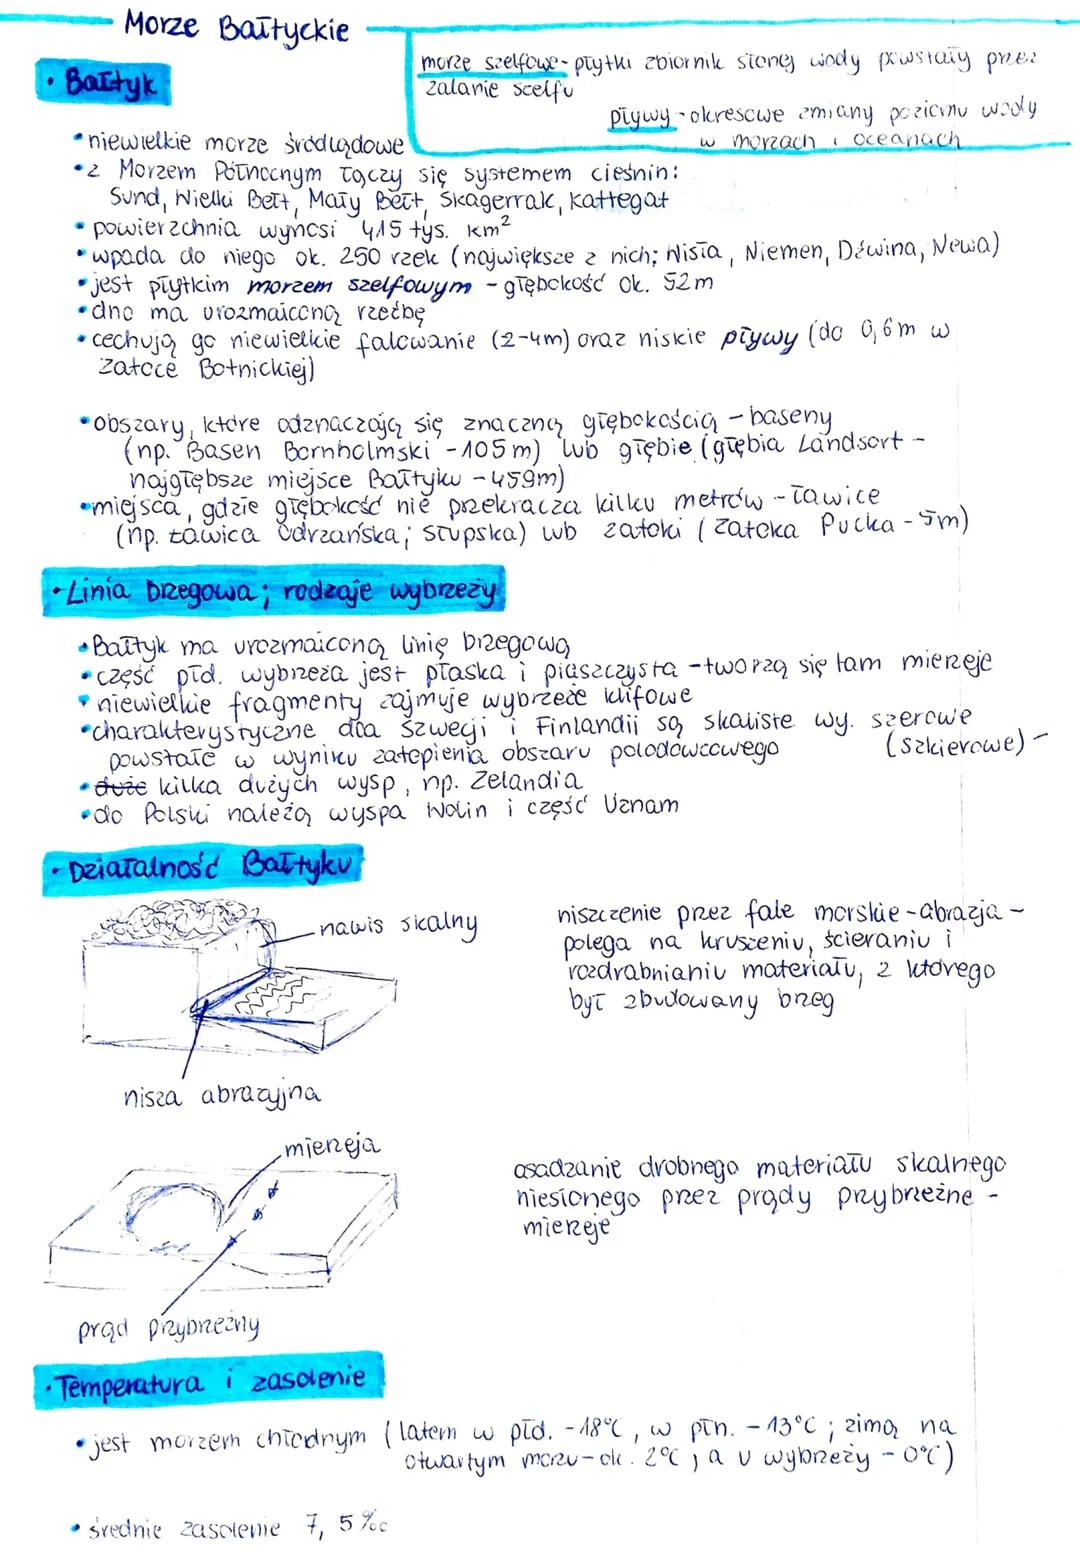 Morze Bałtyckie
morze szelfowe - płytki zbiornik słonej wody powstały przez
zalanie szelfu
pływy - okresowe zmiany poziomu wody
w morzach i oceanach
• Bałtyk
• niewielkie morze śródlądowe
• z Morzem Północnym łączy się systemem cieśnin:
Sund, Wielki Bełt, Mały Bełt, Skagerrak, Kattegat
• powierzchnia wynosi 415 tys. km²
• wpada do niego ok. 250 rzek (największe z nich; Wisła, Niemen, Dźwina, Newa)
• jest płytkim morzem szelfowym - głębokość ok. 52m
• dno ma urozmaiconą rzeźbę
• cechują go niewielkie falowanie (2-4m) oraz niskie pływy (do 0,6m w
Zatoce Botnickiej)
• obszary, które odznaczają się znaczną głębokością - baseny
(np. Basen Bornholmski - 105m) lub głębie (głębia Landsort -
najgłębsze miejsce Bałtyku - 459m)
• miejsca, gdzie głębokość nie przekracza kilku metrów - ławice
(np. Ławica Odrzańska; Słupska) lub zatoki (Zatoka Pucka - 5m)
• Linia brzegowa; rodzaje wybrzeży
• Bałtyk ma urozmaiconą linię brzegową
• część płd. wybrzeża jest płaska i piaszczysta - tworzą się tam mierzeje
• niewielkie fragmenty zajmuje wybrzeże klifowe
• charakterystyczne dla Szwecji i Finlandii są skaliste wy. szerowe
(szkierowe) -
powstałe w wyniku zatopienia obszaru polodowcowego
• duże kilka dużych wysp, np. Zelandia
• do Polski należą wyspa Wolin i część Uznam
• Działalność Bałtyku
nawis skalny
niszczenie przez fale morskie - abrazja -
polega na kruszeniu, ścieraniu i
rozdrabnianiu materiału, z którego
był zbudowany brzeg
nisza abrazyjna
mierzeja
osadzanie drobnego materiału skalnego
niesionego przez prądy przybrzeżne -
mierzeje
prąd przybrzeżny
• Temperatura i zasolenie
• jest morzem chłodnym (latem w płd. - 18°C, w płn. - 13°C; zimą na
otwartym morzu - ok. 2°C, a u wybrzeży - 0°C)
• średnie zasolenie 7,5‰